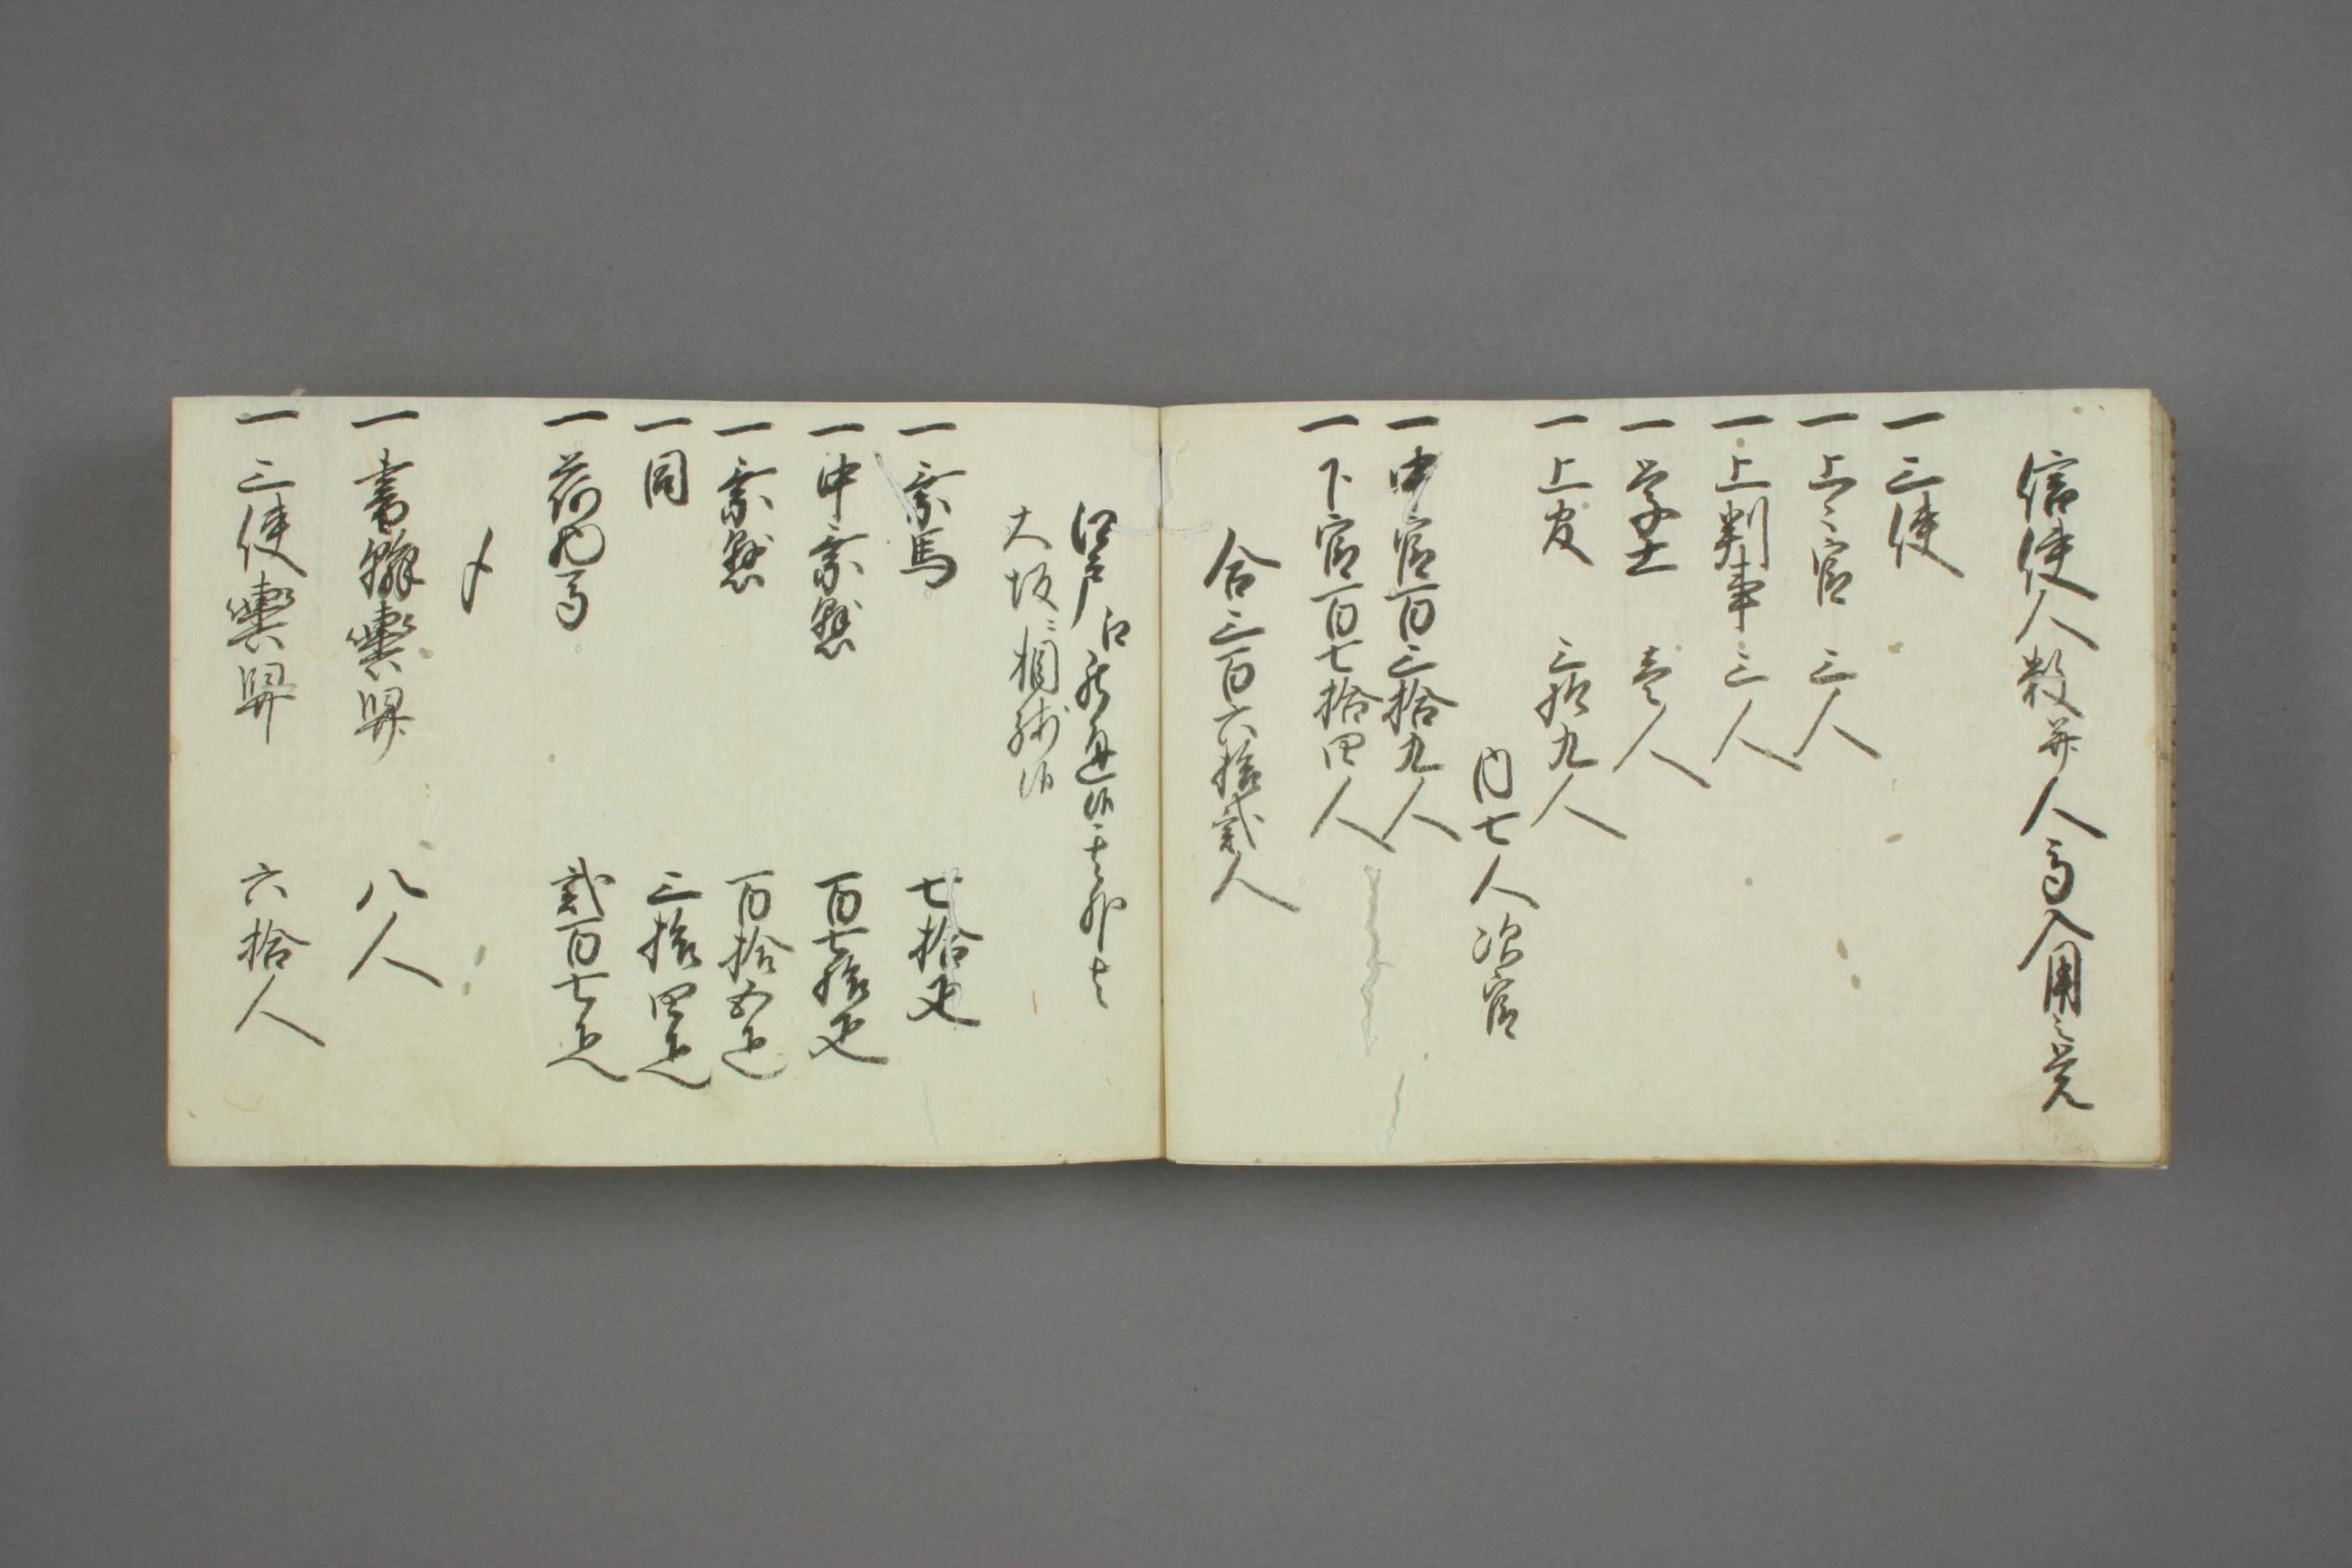 信使人数并人馬入用之覚
一三使
一上々官 三人
一上判事 三人
一学士 壱人
一上官 三拾九人
内七人次官
一中官百三拾九人
一下官百七拾四人
合三百六拾弐人
江戸江
大坂ニ相残候
一乗馬 七拾疋
一中乗懸 百七拾疋
一乗懸 百拾五疋
一同 三拾四疋
一荷馬 弐百七疋
〆
一書翰轝舁 八人
一三使轝舁 六拾人